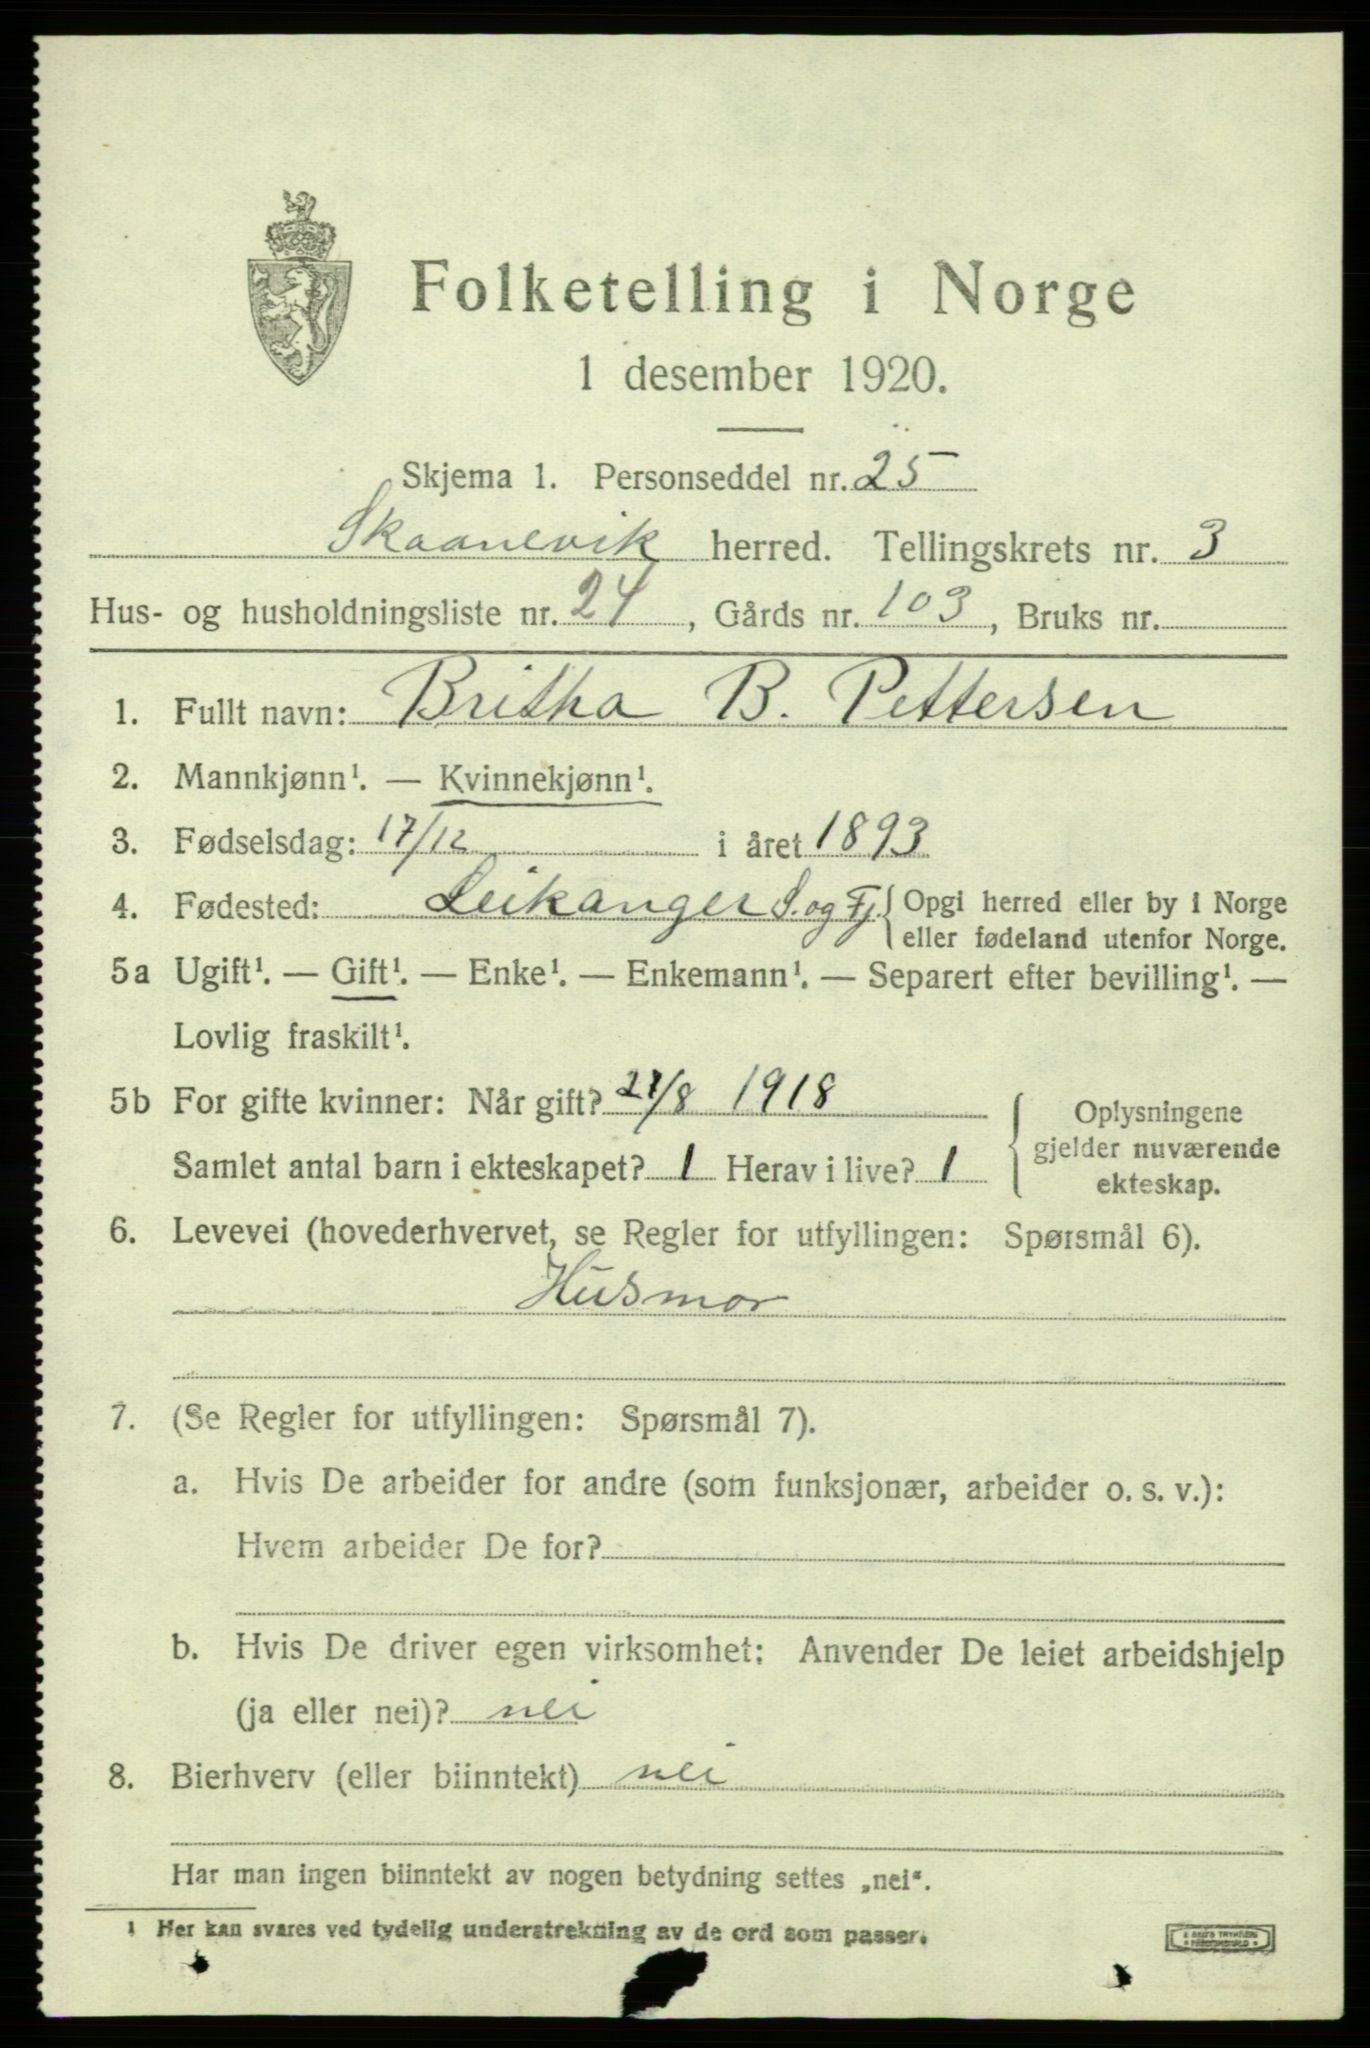 Folketelling i Norge
1 desember 1920.
Skjema 1. Personseddel nr. 25
Skaanevik herred. Tellingskrets nr. 3
Hus- og husholdningsliste nr. 24, Gårds nr. 103, Bruks nr.
1. Fullt navn: Britha B. Pettersen
2. Mannkjønn¹. — Kvinnekjønn¹.
3. Fødselsdag: 17/12 i året 1893
4. Fødested: Leikanger S. og Fj. { Opgi herred eller by i Norge
eller fødeland utenfor Norge.
5a Ugift¹. — Gift¹. — Enke¹. — Enkemann¹. — Separert efter bevilling¹. —
Lovlig fraskilt¹.
5b For gifte kvinner: Når gift? 27/8 1918
Samlet antal barn i ekteskapet? 1 Herav i live? 1
Oplysningene
gjelder nuværende
ekteskap.
6. Levevei (hovederhvervet, se Regler for utfyllingen: Spørsmål 6).
Husmor
7. (Se Regler for utfyllingen: Spørsmål 7).
a. Hvis De arbeider for andre (som funksjonær, arbeider o. s. v.):
Hvem arbeider De for?
b. Hvis De driver egen virksomhet: Anvender De leiet arbeidshjelp
(ja eller nei)? nei
8. Bierhverv (eller biinntekt) nei
Har man ingen biinntekt av nogen betydning settes „nei“.
1 Her kan svares ved tydelig understrekning av de ord som passer.